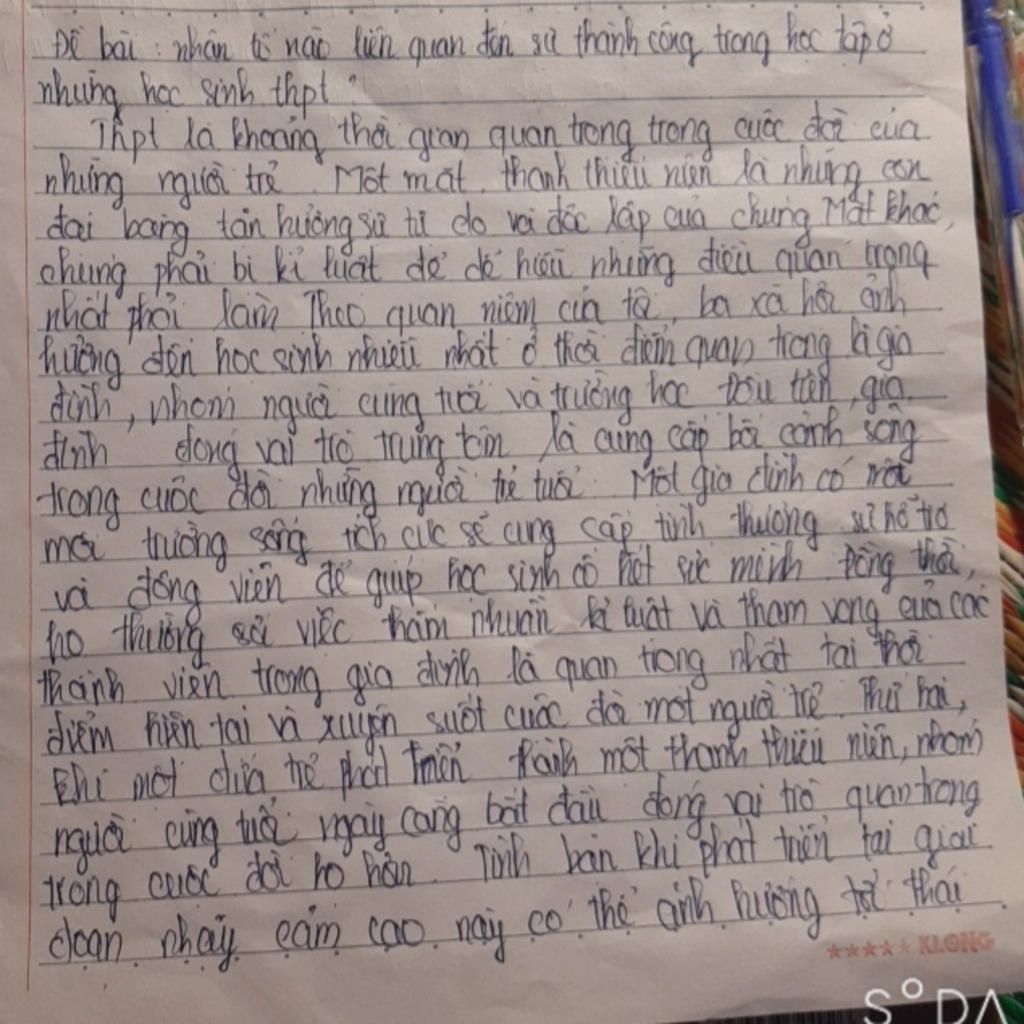 Đề bài: nhân tố nào liên quan đến sự thành công trong học tập ở
những học sinh thpt?
Thpt là khoảng thời gian quan trọng trong cuộc đời của
những người trẻ. Một mặt, thanh thiếu niên là những con
đại bàng tận hưởng sự tự do và độc lập của chúng. Mặt khác,
chúng phải bị kỉ luật để dễ hiểu những điều quan trọng
nhất phải làm. Theo quan niệm của tôi, ba xã hội ảnh
hưởng đến học sinh nhiều nhất ở thời điểm quan trọng là gia
đình, nhóm người cùng tuổi và trường học. Đầu tiên, gia
đình đóng vai trò trung tâm là cung cấp bối cảnh sống
trong cuộc đời những người trẻ tuổi. Một gia đình có môi
môi trường sống tích cực sẽ cung cấp tình thương, sự hỗ trợ
và động viên để giúp học sinh cố hết sức mình. Đồng thời,
họ thường việc thấm nhuần kỉ luật và tham vọng của các
thành viên trong gia đình là quan trọng nhất tại thời
điểm hiện tại và xuyên suốt cuộc đời một người trẻ. Thứ hai,
khi một đứa trẻ phát triển thành một thanh thiếu niên, nhóm
người cùng tuổi ngày càng bắt đầu đóng vai trò quan trọng
trong cuộc đời họ hơn. Tình bạn khi phát triển tại giai
đoạn nhạy cảm cao này có thể ảnh hưởng tới thái
KLONG
SODA